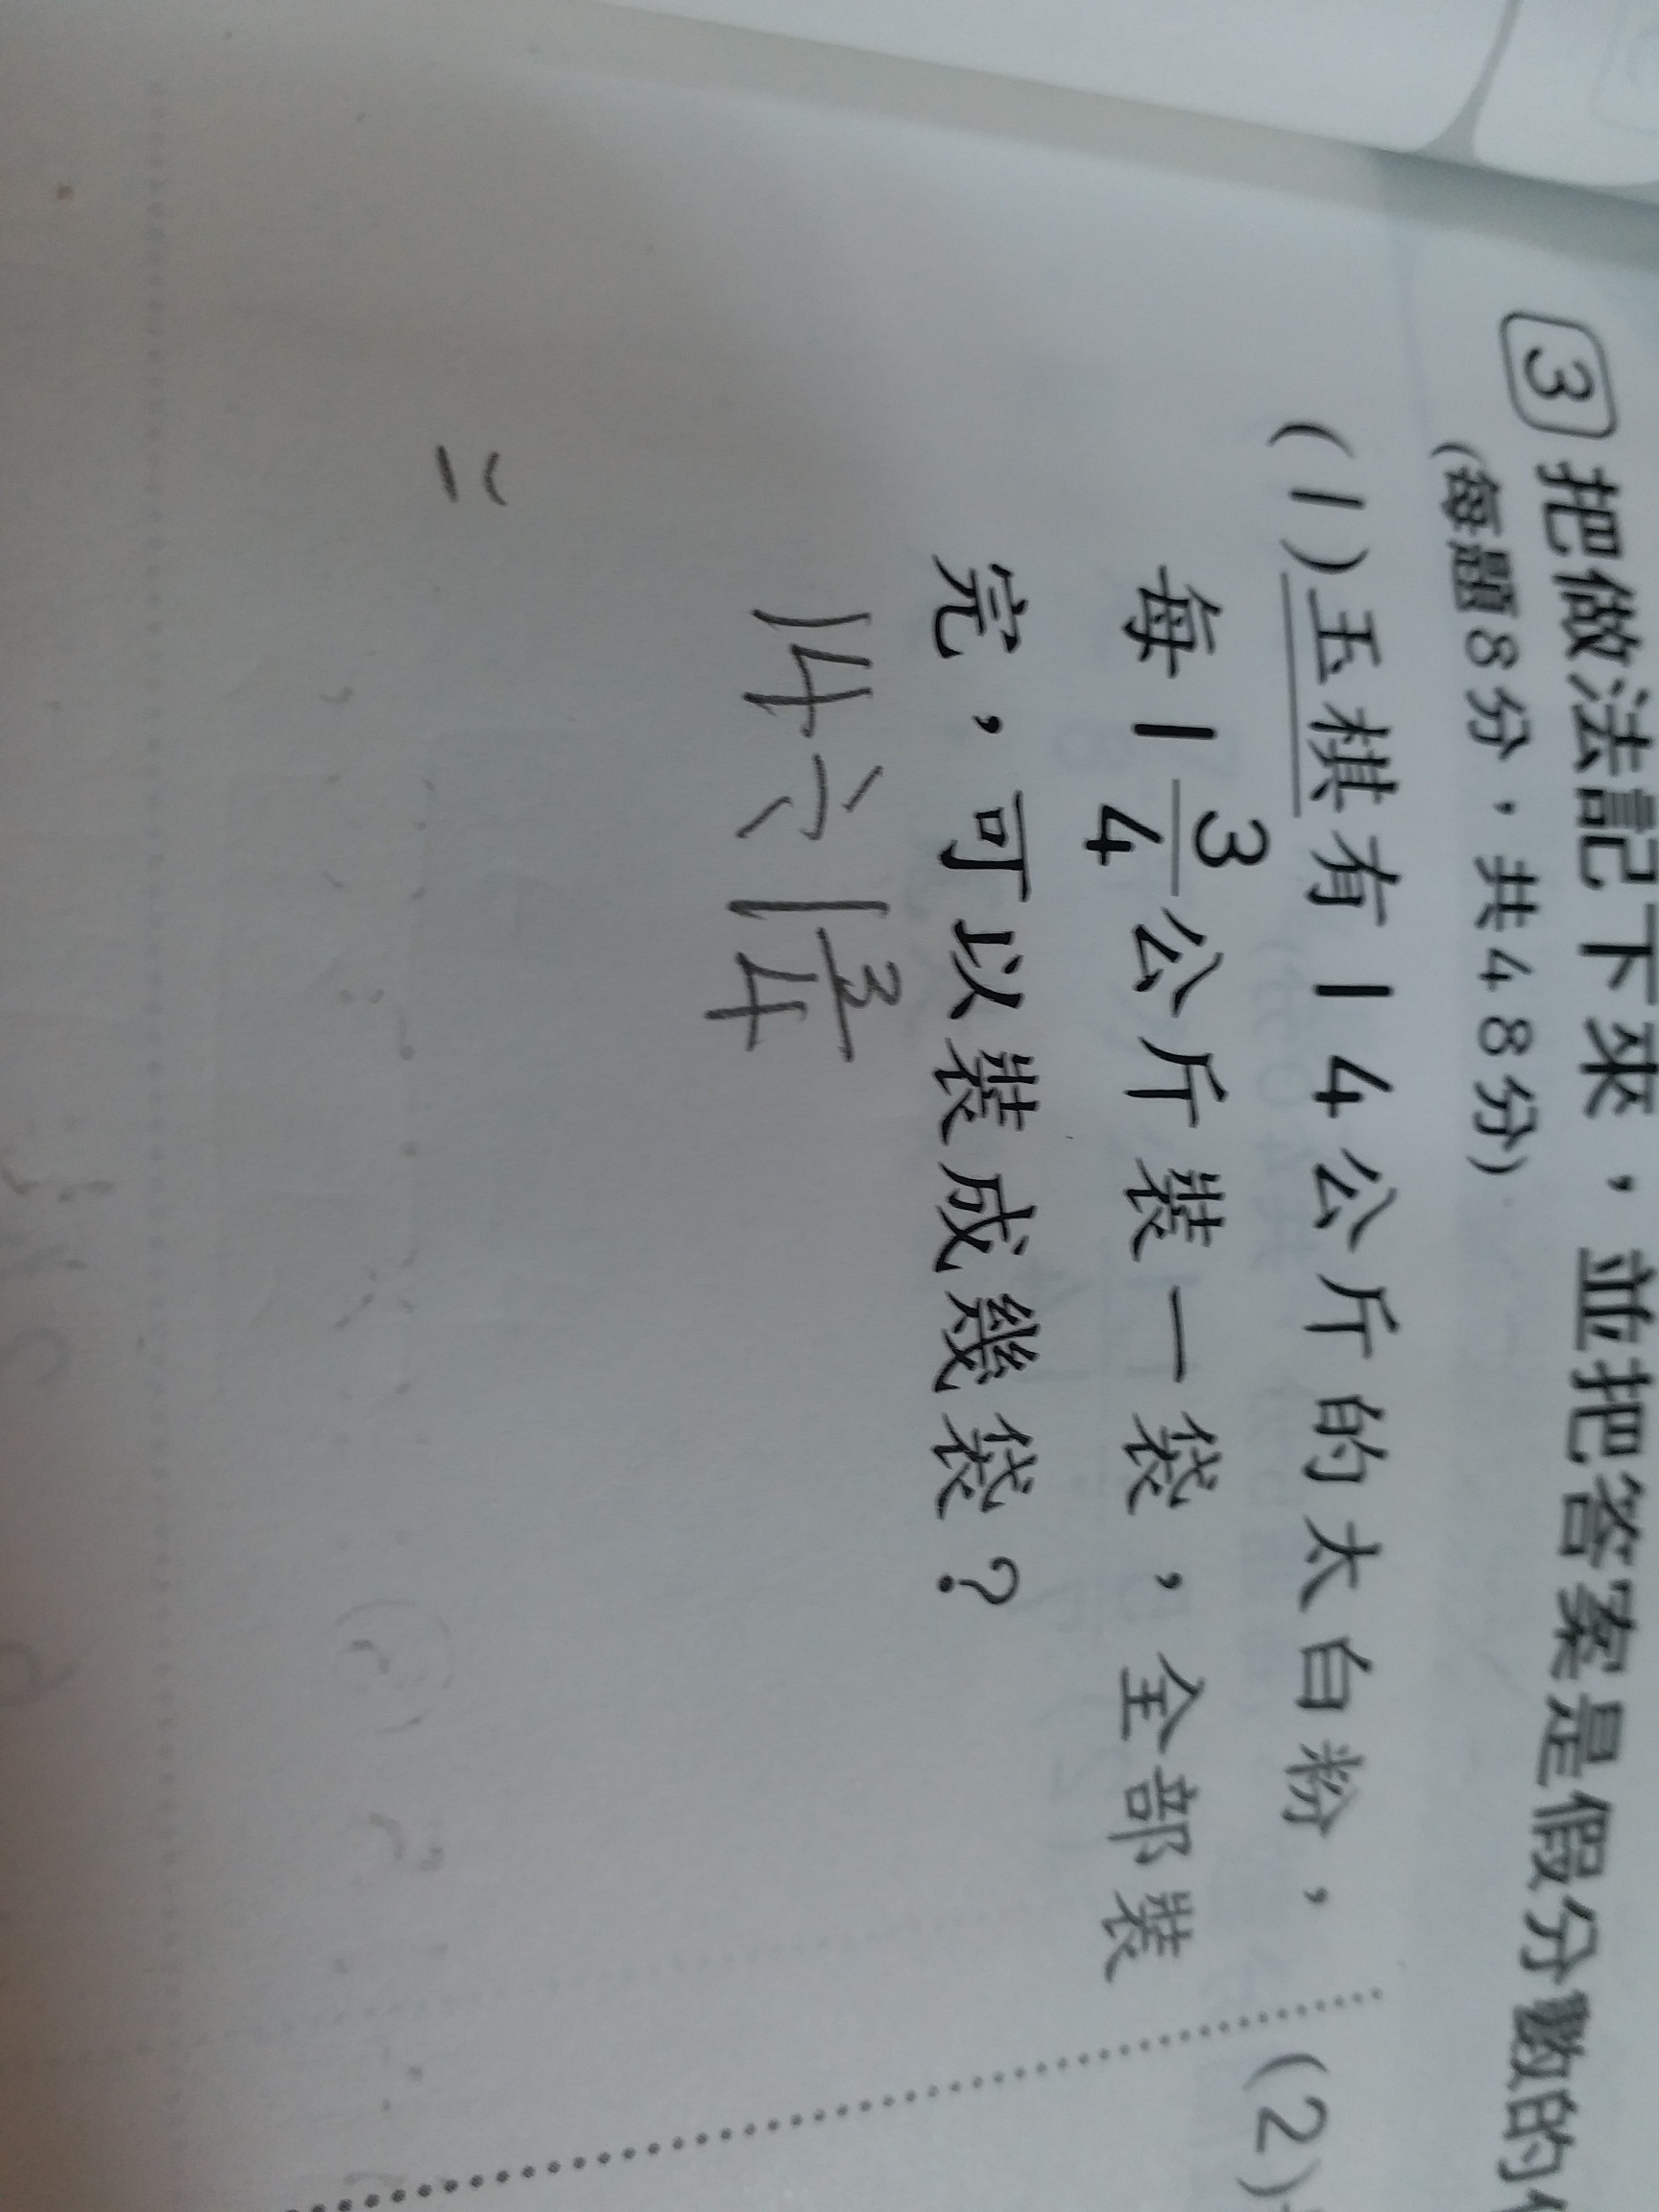 3 把做法記下來，並把答案是假分數的
(每題8分，共48分)
(1)玉棋有14公斤的太白粉，
每1 3/4公斤裝一袋，全部裝
完，可以裝成幾袋？
14 1 3/4
=
(2)